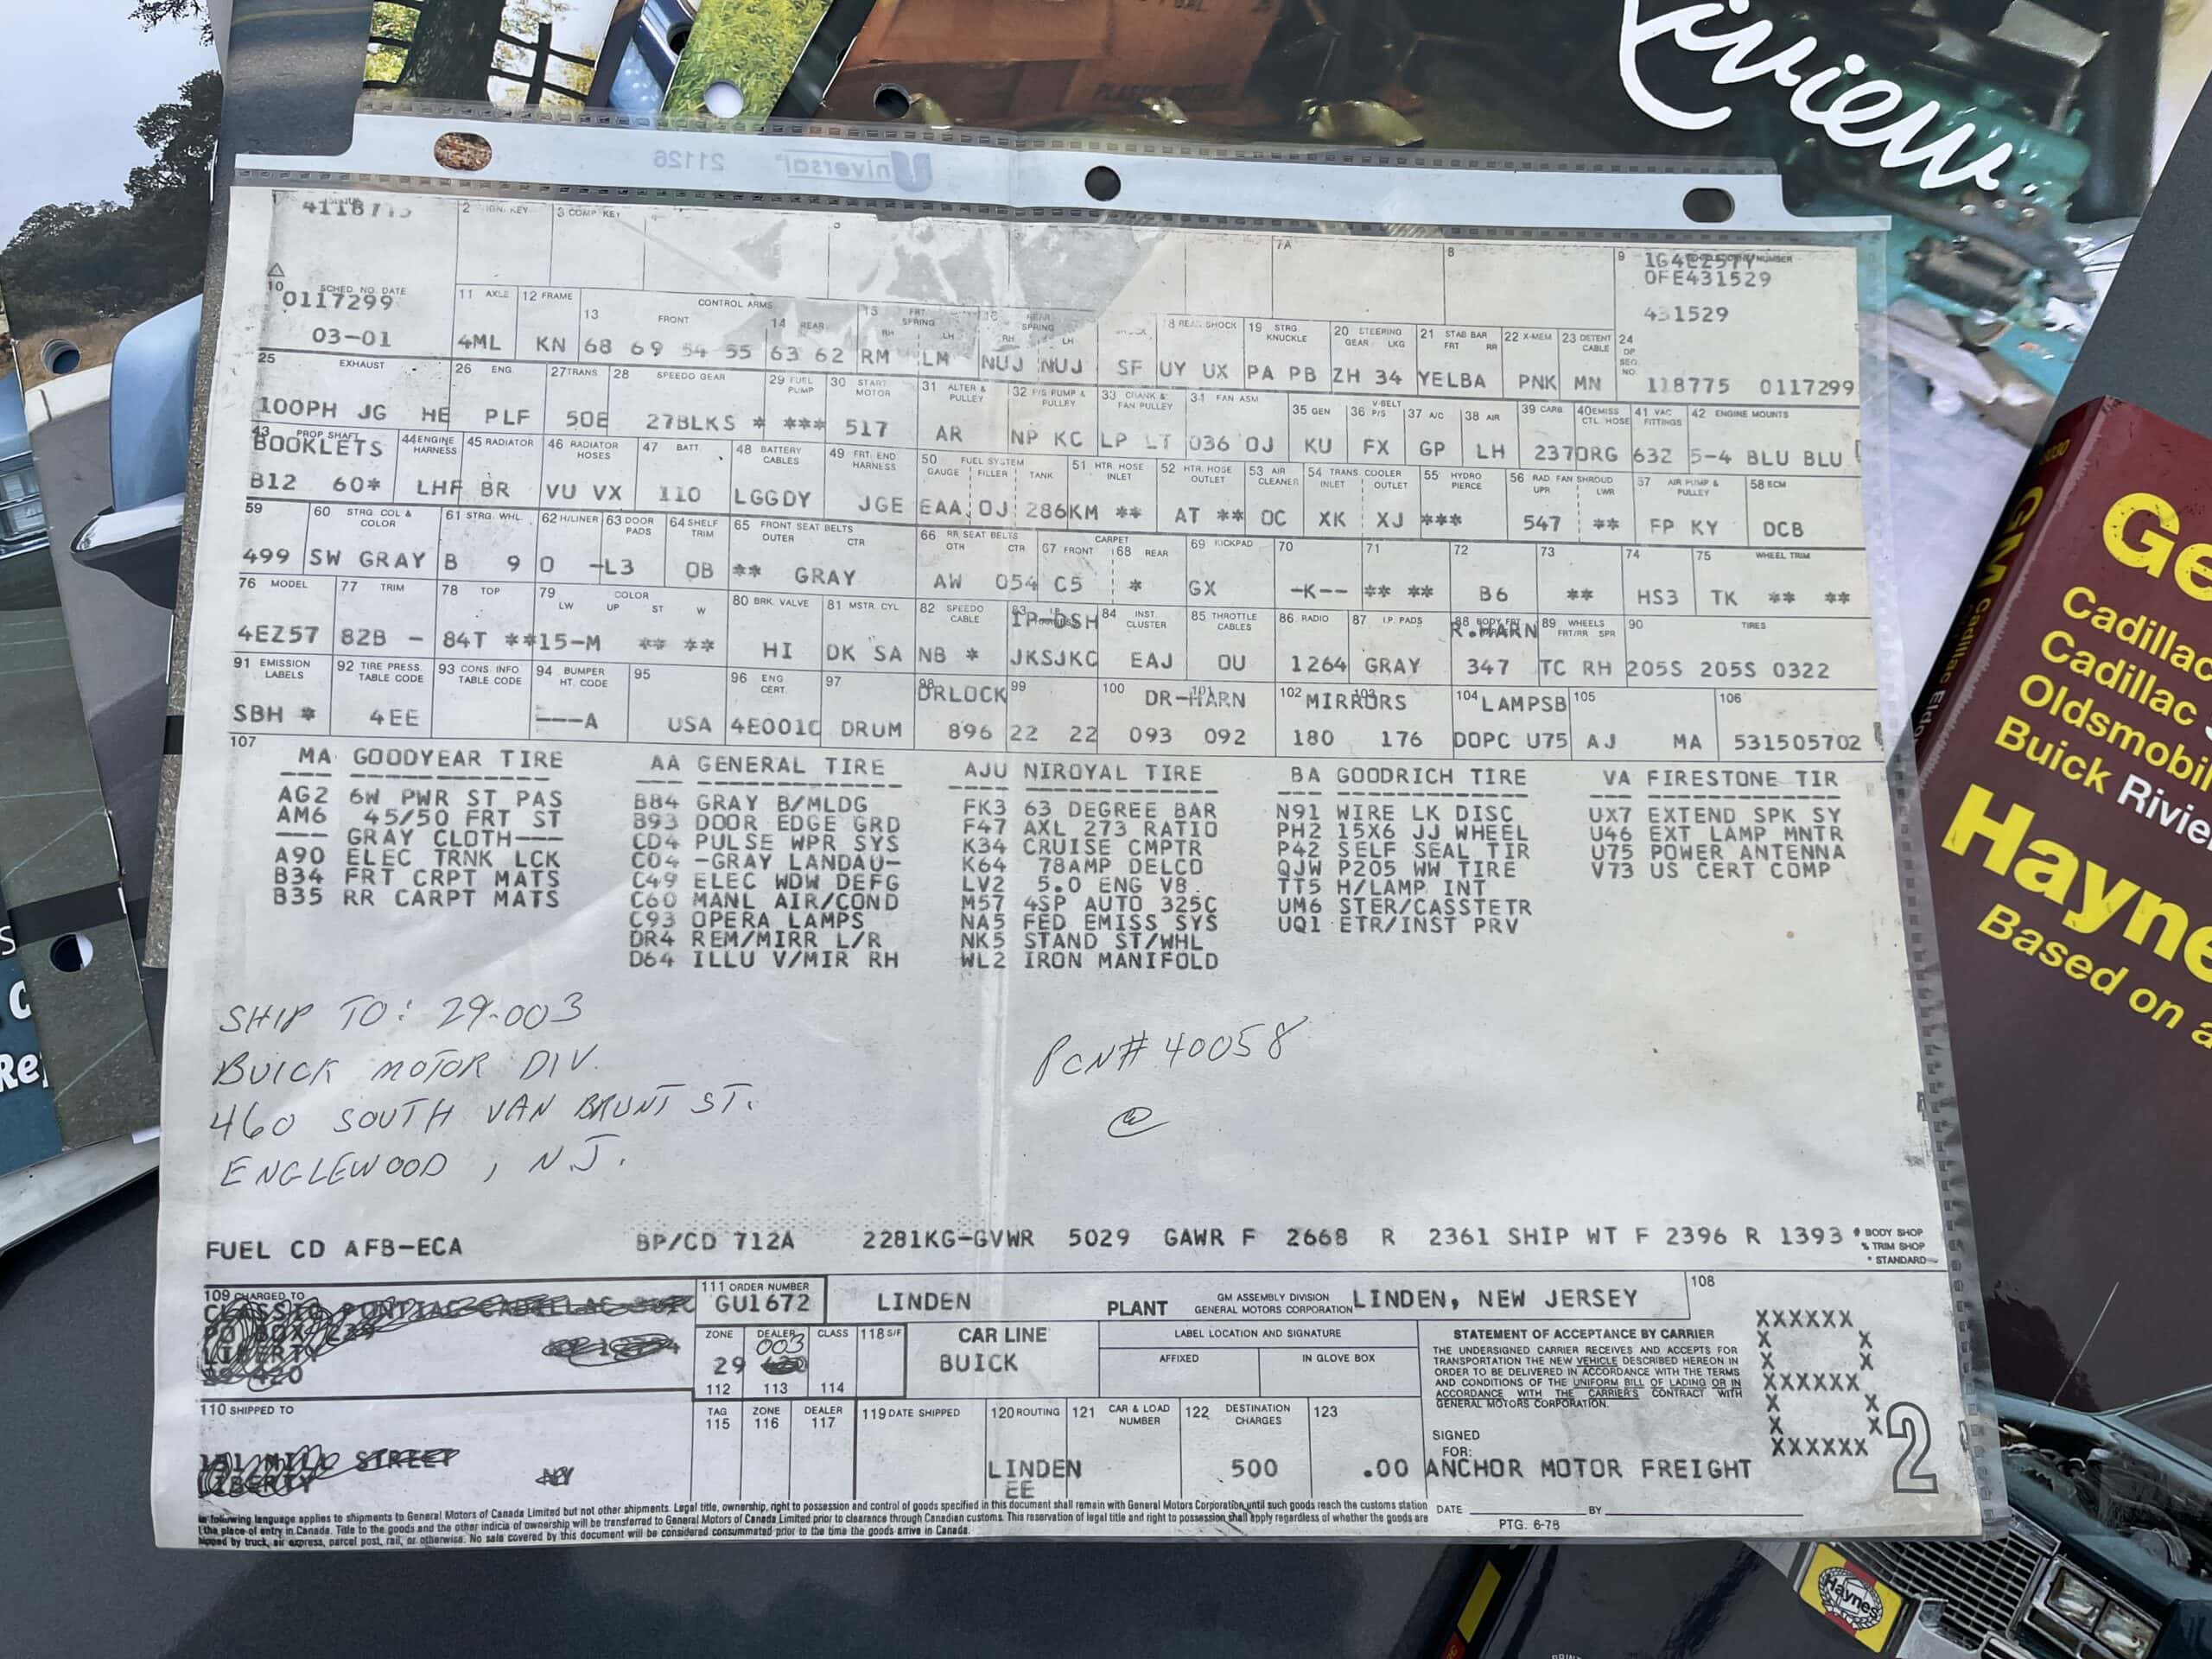 Riview.
Universal® 21126
2 IGN. KEY
3 COMP KEY
7A
8
9
OFE431529
431529
10 SCHED NO. DATE
0117299
03-01
11 AXLE
4ML
12 FRAME
KN
CONTROL ARMS
13 FRONT
68 69 54 55
14 REAR
63 62
FRT SPRING
RH LH
RM LM
REAR SPRING
RH LH
NUJ NUJ
SF
REAR SHOCK
UY UX
19 STRG. KNUCKLE
PA PB
20 STEERING GEAR LKG
ZH 34
21 STAB BAR FRT RR
YELBA
22 X-MEM
PNK
23 DETENT CABLE
MN
24 OP SEQ. NO.
118775 0117299
25 EXHAUST
100PH JG HE
26 ENG.
PLF
27 TRANS
50E
28 SPEEDO GEAR
27BLKS *
29 FUEL PUMP
***
30 START MOTOR
517
31 ALTER & PULLEY
AR
32 P/S PUMP & PULLEY
NP KC
33 CRANK & FAN PULLEY
LP LT
34 FAN ASM
036 OJ
V-BELT
35 GEN
KU
36 P/S
FX
37 A/C
GP
38 AIR
LH
39 CARB.
2370
40 EMISS CTL HOSE
RG
41 VAC FITTINGS
632
42 ENGINE MOUNTS
5-4 BLU BLU
43 PROP SHAFT
BOOKLETS
B12 60*
44 ENGINE HARNESS
LHF
45 RADIATOR
BR
46 RADIATOR HOSES
VU VX
47 BATT.
110
48 BATTERY CABLES
LGGDY
49 FRT. END HARNESS
JGE
50 FUEL SYSTEM
GAUGE FILLER TANK
EAA OJ 286KM
51 HTR. HOSE INLET
**
52 HTR. HOSE OUTLET
AT **
53 AIR CLEANER
OC
54 TRANS COOLER
INLET OUTLET
XK XJ
55 HYDRO PIERCE
***
56 RAD. FAN SHROUD
UPR LWR
547 **
57 AIR PUMP & PULLEY
FP KY
58 ECM
DCB
59
499
60 STRG. COL & COLOR
SW GRAY
61 STRG. WHL
B 9
62 H/LINER
0
63 DOOR PADS
-L3
64 SHELF TRIM
OB
65 FRONT SEAT BELTS
OUTER CTR
** GRAY
66 RR SEAT BELTS
OTH CTR
AW 054
CARPET
67 FRONT
C5
68 REAR
*
69 KICKPAD
GX
70
-K--
71
** **
72
B6
73
**
74
HS3
75 WHEEL TRIM
TK ** **
76 MODEL
4EZ57
77 TRIM
82B -
78 TOP
84T **
79 COLOR
LW UP ST W
15-M ** **
80 BRK. VALVE
HI
81 MSTR. CYL
DK SA
82 SPEEDO CABLE
NB *
IP-DSH
JKSJKC
84 INST. CLUSTER
EAJ
85 THROTTLE CABLES
OU
86 RADIO
1264
87 I.P. PADS
GRAY
R.HARN
347
89 WHEELS FRT/RR SPR
TC RH
90 TIRES
205S 205S 0322
91 EMISSION LABELS
SBH *
92 TIRE PRESS. TABLE CODE
4EE
93 CONS INFO TABLE CODE
94 BUMPER HT. CODE
---A
95
USA
96 ENG CERT.
4E001C
97
DRUM
98
DRLOCK
896
99
22 22
100
DR-HARN
093 092
102 MIRRORS
180 176
104 LAMPSB
DOPC U75
105
AJ MA
106
531505702
107
MA GOODYEAR TIRE
AG2 6W PWR ST PAS
AM6 45/50 FRT ST
--- GRAY CLOTH---
A90 ELEC TRNK LCK
B34 FRT CRPT MATS
B35 RR CARPT MATS
AA GENERAL TIRE
B84 GRAY B/MLDG
B93 DOOR EDGE GRD
CD4 PULSE WPR SYS
C04 -GRAY LANDAU-
C49 ELEC WDW DEFG
C60 MANL AIR/COND
C93 OPERA LAMPS
DR4 REM/MIRR L/R
D64 ILLU V/MIR RH
AJU NIROYAL TIRE
FK3 63 DEGREE BAR
F47 AXL 273 RATIO
K34 CRUISE CMPTR
K64 78AMP DELCO
LV2 5.0 ENG V8
M57 4SP AUTO 325C
NA5 FED EMISS SYS
NK5 STAND ST/WHL
WL2 IRON MANIFOLD
BA GOODRICH TIRE
N91 WIRE LK DISC
PH2 15X6 JJ WHEEL
P42 SELF SEAL TIR
QJW P205 WW TIRE
TT5 H/LAMP INT
UM6 STER/CASSTETR
UQ1 ETR/INST PRV
VA FIRESTONE TIR
UX7 EXTEND SPK SY
U46 EXT LAMP MNTR
U75 POWER ANTENNA
V73 US CERT COMP
SHIP TO: 29-003
BUICK MOTOR DIV.
460 SOUTH VAN BRUNT ST.
ENGLEWOOD, N.J.
PCN# 40058
FUEL CD AFB-ECA BP/CD 712A 2281KG-GVWR 5029 GAWR F 2668 R 2361 SHIP WT F 2396 R 1393
# BODY SHOP
% TRIM SHOP
* STANDARD
109 CHARGED TO
CLASSIC PONTIAC CADILLAC
PO BOX 239
LIBERTY
111 ORDER NUMBER
GU1672
LINDEN
PLANT
GM ASSEMBLY DIVISION
GENERAL MOTORS CORPORATION
LINDEN, NEW JERSEY
108
ZONE
29
112
DEALER
003
113
CLASS
114
118 S/F
CAR LINE
BUICK
LABEL LOCATION AND SIGNATURE
AFFIXED
IN GLOVE BOX
STATEMENT OF ACCEPTANCE BY CARRIER
THE UNDERSIGNED CARRIER RECEIVES AND ACCEPTS FOR
TRANSPORTATION THE NEW VEHICLE DESCRIBED HEREON IN
ORDER TO BE DELIVERED IN ACCORDANCE WITH THE TERMS
AND CONDITIONS OF THE UNIFORM BILL OF LADING OR IN
ACCORDANCE WITH THE CARRIER'S CONTRACT WITH
GENERAL MOTORS CORPORATION.
XXXXXX
X X
X X
XXXXXX
X X
X X
XXXXXX
2
110 SHIPPED TO
151 MILL STREET
LIBERTY NY
TAG
115
ZONE
116
DEALER
117
119 DATE SHIPPED
120 ROUTING
LINDEN
EE
121 CAR & LOAD NUMBER
122 DESTINATION CHARGES
500
123
.00
SIGNED
FOR:
ANCHOR MOTOR FREIGHT
DATE BY
PTG. 6-78
following language applies to shipments to General Motors of Canada Limited but not other shipments. Legal title, ownership, right to possession and control of goods specified in this document shall remain with General Motors Corporation until such goods reach the customs station
the place of entry in Canada. Title to the goods and the other indicia of ownership will be transferred to General Motors of Canada Limited prior to clearance through Canadian customs. This reservation of legal title and right to possession shall apply regardless of whether the goods are
by truck, air express, parcel post, rail, or otherwise. No sale covered by this document will be considered consummated prior to the time the goods arrive in Canada.
GM Cadillac Eldo
Ge
Cadillac
Cadillac
Oldsmobil
Buick Rivie
Hayne
Based on a
Haynes